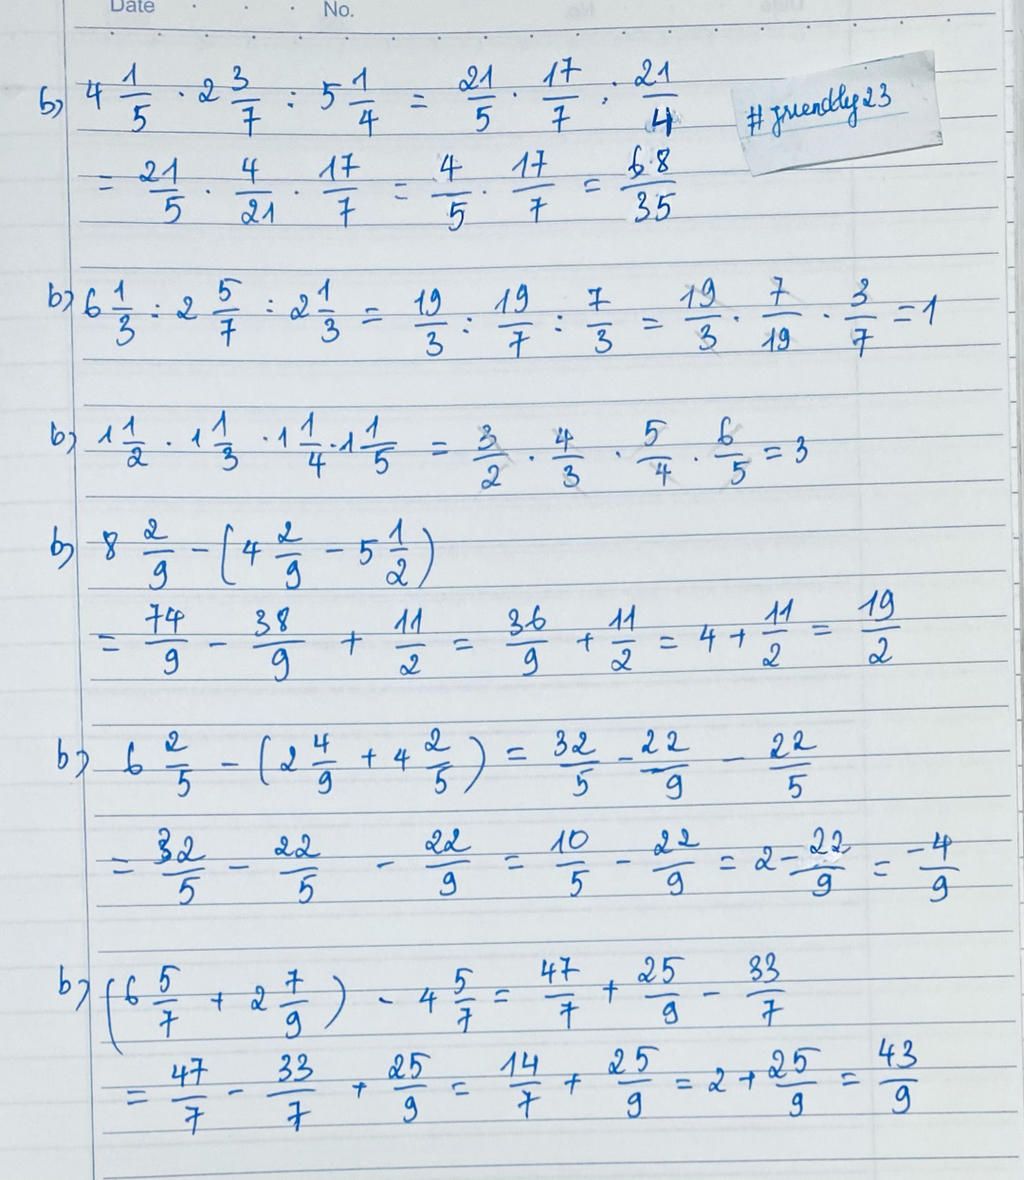 Date No.
b) 4 1/5 . 2 3/7 : 5 1/4 = 21/5 . 17/7 : 21/4
#friendly23
= 21/5 . 4/21 . 17/7 = 4/5 . 17/7 = 68/35
b) 6 1/3 : 2 5/7 : 2 1/3 = 19/3 : 19/7 : 7/3 = 19/3 . 7/19 . 3/7 = 1
b) 1 1/2 . 1 1/3 . 1 1/4 . 1 1/5 = 3/2 . 4/3 . 5/4 . 6/5 = 3
b) 8 2/9 - (4 2/9 - 5 1/2)
= 74/9 - 38/9 + 11/2 = 36/9 + 11/2 = 4 + 11/2 = 19/2
b) 6 2/5 - (2 4/9 + 4 2/5) = 32/5 - 22/9 - 22/5
= 32/5 - 22/5 - 22/9 = 10/5 - 22/9 = 2 - 22/9 = -4/9
b) (6 5/7 + 2 7/9) - 4 5/7 = 47/7 + 25/9 - 33/7
= 47/7 - 33/7 + 25/9 = 14/7 + 25/9 = 2 + 25/9 = 43/9